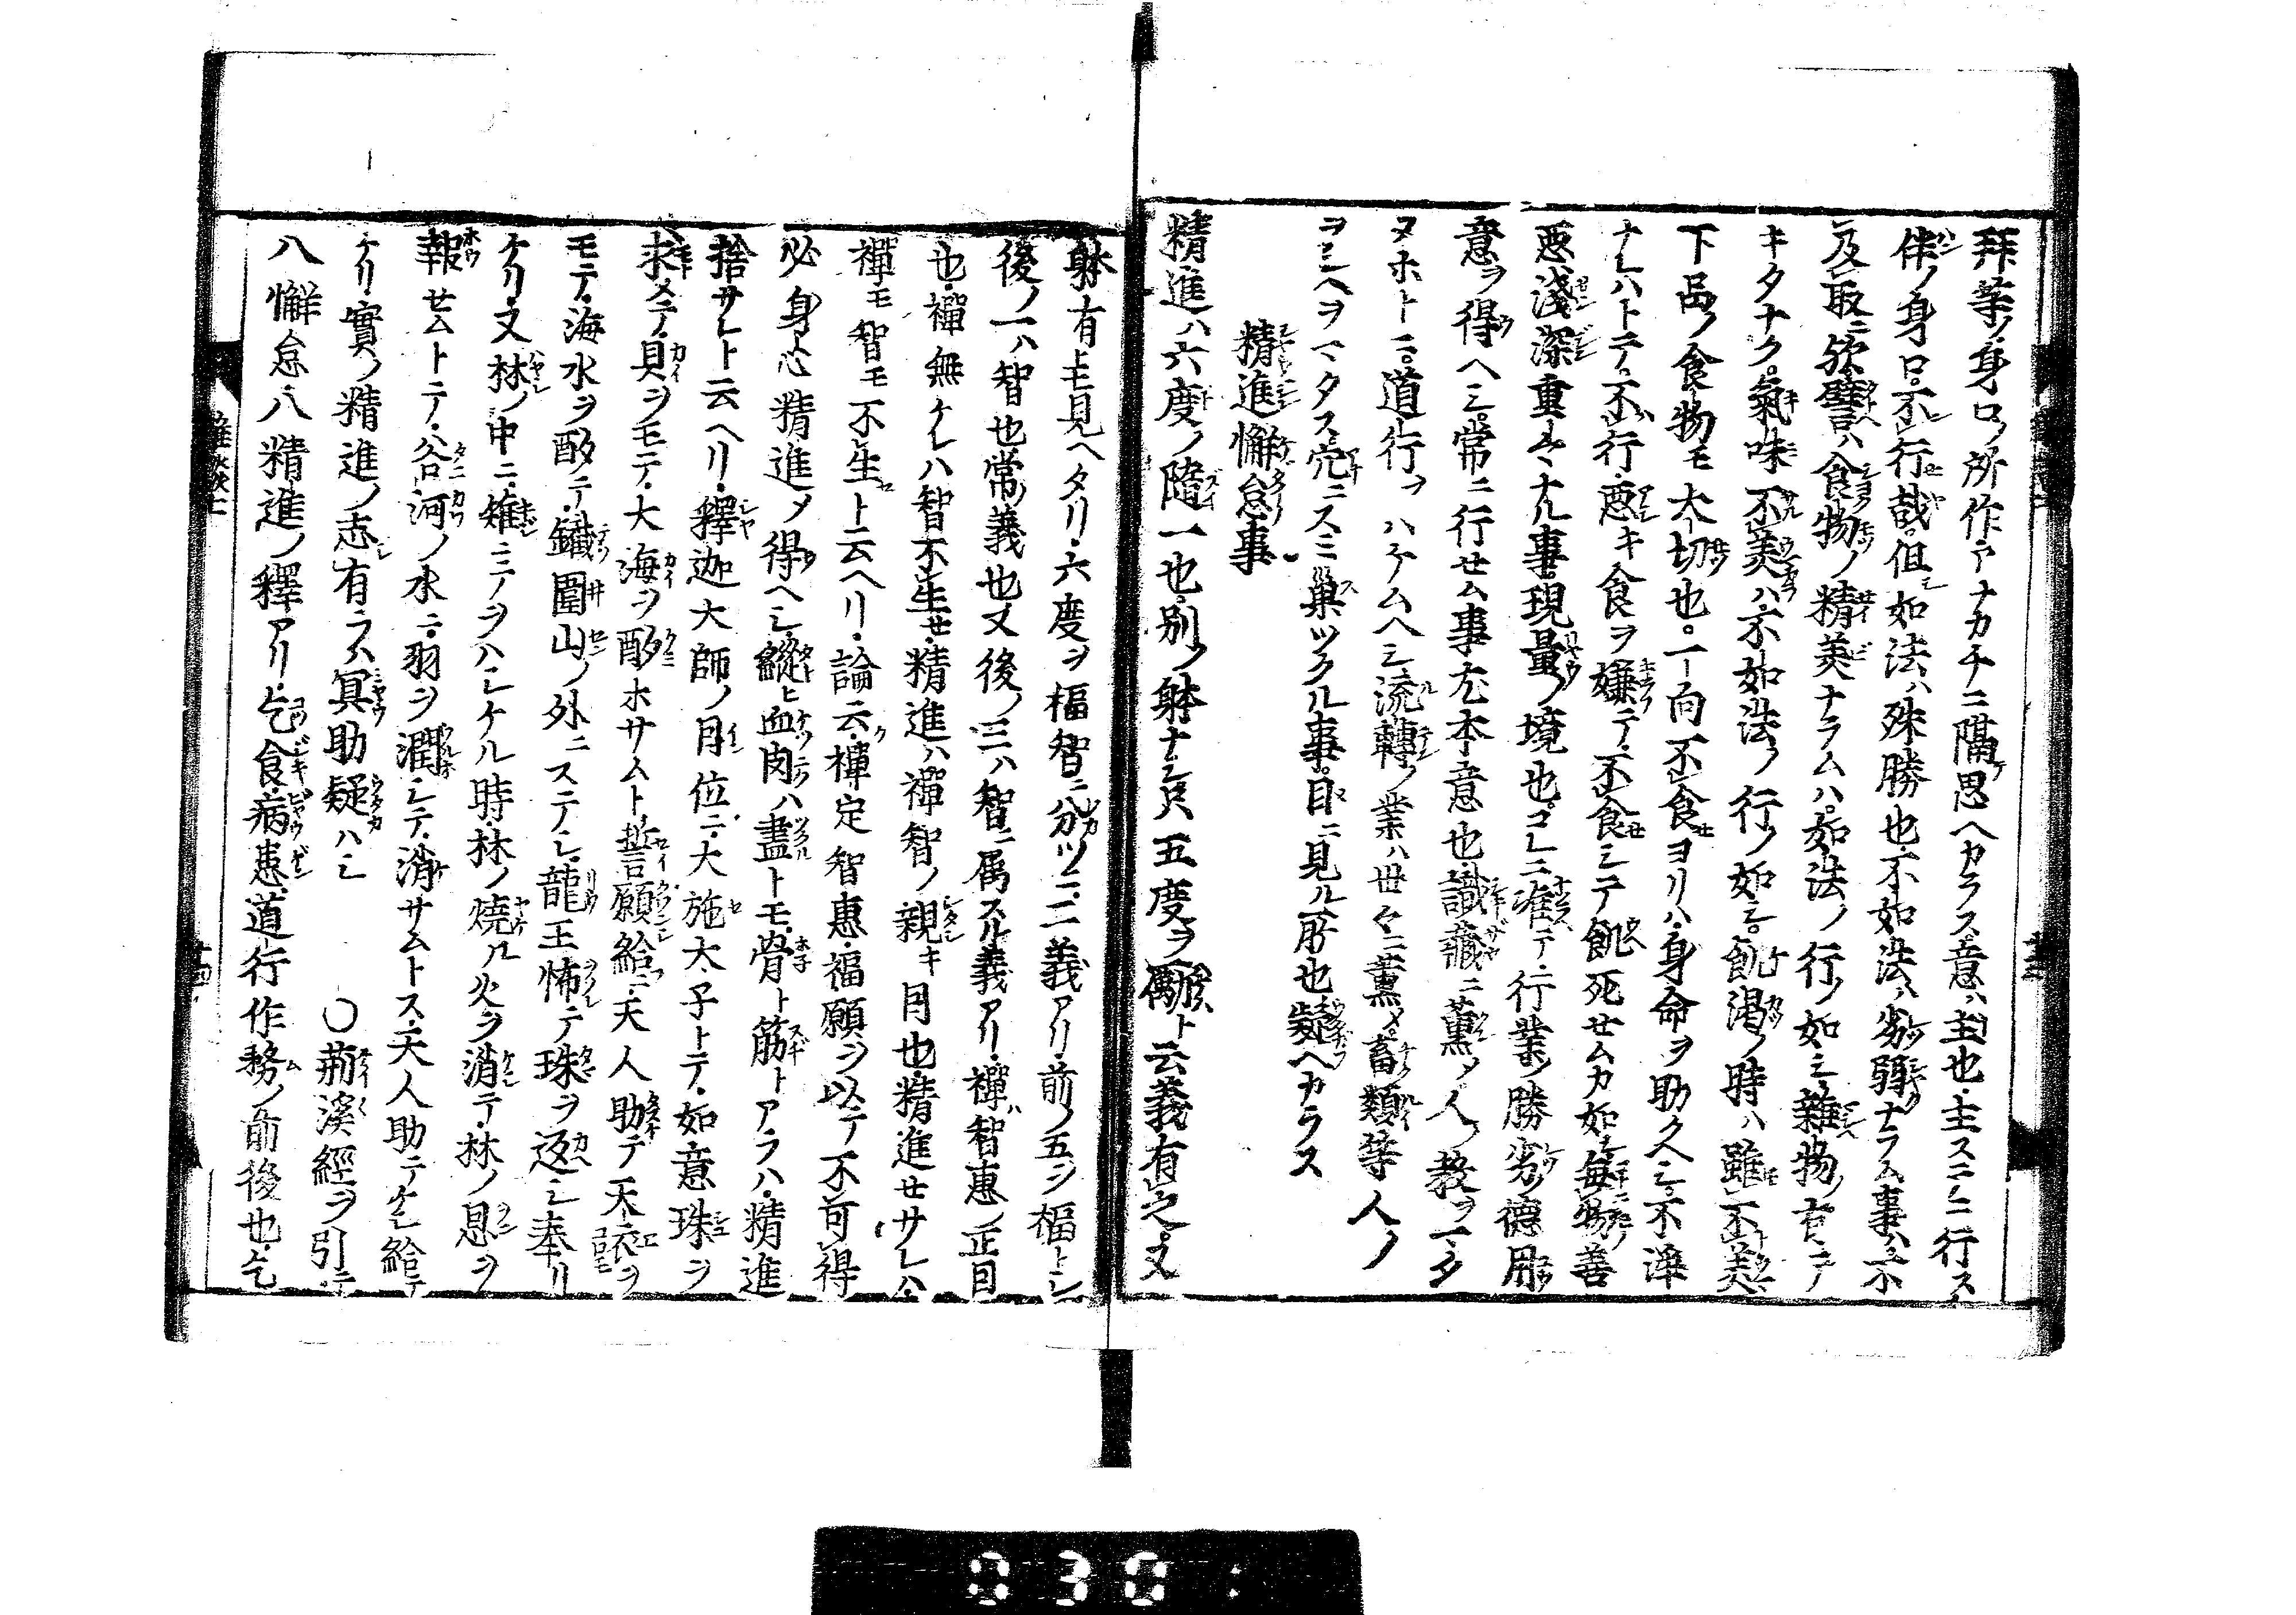 拜等ノ身口ノ所作アナカチニ隔思ヘカラス意ハ主也主スニ行ス
伴ノ身口不行哉但如法ハ殊勝也不如法ハ劣弱ナラム事ハ不
及取ニ弥譬ハ食物ノ精美ナラムハ如法ノ行ノ如シ雜物ノ有テ
キタナク氣味不美ハ不如法ノ行ノ如シ飢渴ノ時ハ雖不美
下品ノ食物モ大切也一向不食ヨリハ身命ヲ助クヘシ不淨
ナレハトテ不行悪キ食ヲ嫌テ不食シテ飢死セムカ如シ毎物善
悪淺深重々ナル事現量ノ境也コレニ准テ行業ノ勝劣德用
意ヲ得ヘシ常ニ行セム事尤本意也識藏ニ薫ノ人ノ教ヲマタ
ヌホトニ道行ヲハケムヘシ流轉ノ業ハ世々ニ薫メ畜類等人ノ
ヲシヘヲマタス穴ニスミ巢ツクル事目ニ見ル所也疑ヘカラス
精進懈怠事
精進ハ六度ノ隨一也別ノ躰ナシ只五度ヲ勵ト云義有之又
躰有モ見ヘタリ六度ヲ福智ニ分ツニ二義アリ前ノ五ヲ福トシ
後ノ一ハ智也常ノ義也又後ノ三ハ智ニ属スル義アリ禪智惠ノ正因
也禪無ケレハ智不生セ精進ハ禪智ノ親キ因也精進セサレハ
禪モ智モ不生ト云ヘリ論云禪定智惠福願ヲ以テ不可得
必身心精進メ得ヘシ縱ヒ血肉ハ盡トモ骨ト筋トアラハ精進
捨サレト云ヘリ釋迦大師ノ因位ニ大施太子トテ如意珠ヲ
求メテ貝ヲモテ大海ヲ酌ホサムト誓願給ニ天人助テ天衣ヲ
モテ海水ヲ酌テ鐵圍山ノ外ニステシ龍王怖テ珠ヲ返シ奉リ
ケリ又林ノ中ニ雉ニテヲハシケル時林ノ燒ル火ヲ消テ林ノ恩ヲ
報セムトテ谷河ノ水ニ羽ヲ潤シテ消サムトス天人助テケシ給テ
ケリ實ノ精進ノ志有ラハ冥助疑ハシ　〇荊溪經ヲ引テ
八懈怠八精進ノ釋アリ乞食病患道行作務ノ前後也乞